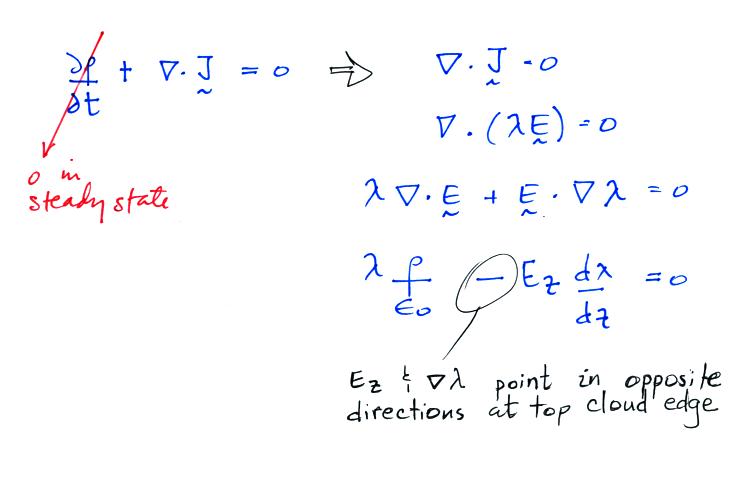 ∂ρ/∂t + ∇ · J̰ = 0 ⇒ ∇ · J̰ = 0
0 in
steady state
∇ · (λḚ) = 0
λ ∇ · Ḛ + Ḛ · ∇λ = 0
λ ρ/ϵ₀ − E_z dλ/dz = 0
E_z & ∇λ point in opposite
directions at top cloud edge